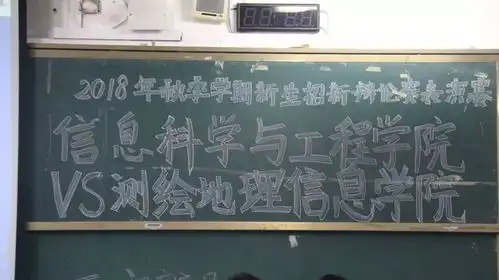 2018年秋季学期新生招新辩论赛表演赛
信息科学与工程学院
VS测绘地理信息学院